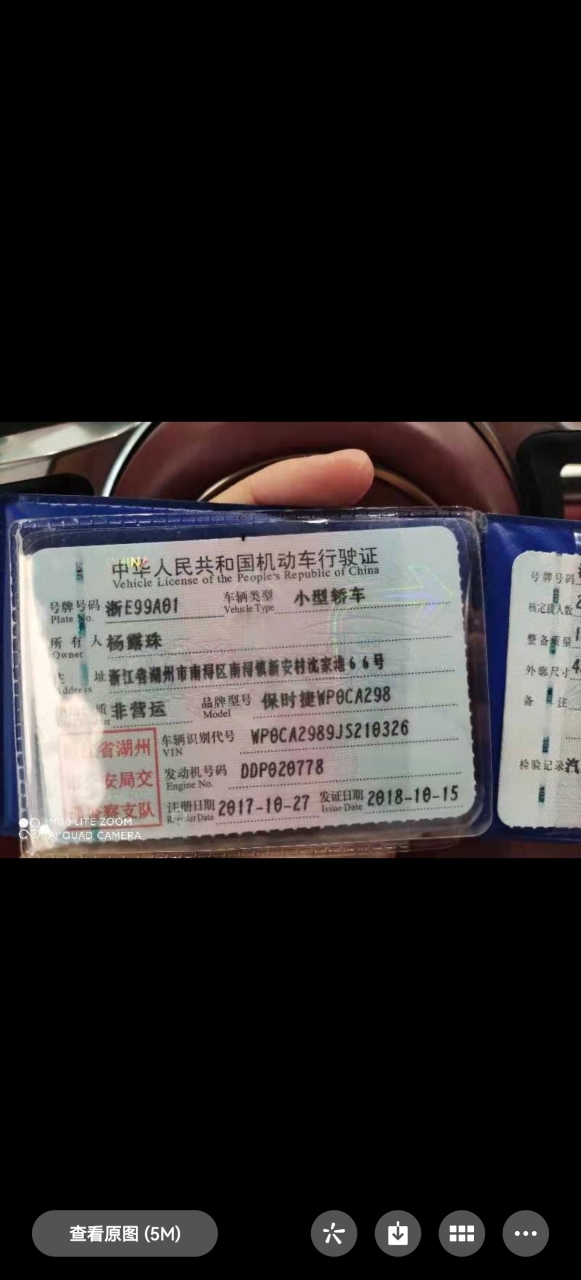 中华人民共和国机动车行驶证
Vehicle License of the People's Republic of China
号牌号码 浙E99A01 车辆类型 小型轿车
Plate No. Vehicle Type
所有人 杨露珠
Owner
址 浙江省湖州市南浔区南浔镇新安村沈家墙66号
Address
非营运 品牌型号 保时捷WP0CA298
Model
车辆识别代号 WP0CA2989JS210326
VIN
发动机号码 DDP020778
Engine No.
注册日期 2017-10-27 发证日期 2018-10-15
Register Date Issue Date
省湖州
安局交
察支队
号牌号码
核定载人数
整备质量
外廓尺寸
备 注
检验记录 汽
LITE ZOOM
AI QUAD CAMERA
查看原图 (5M)